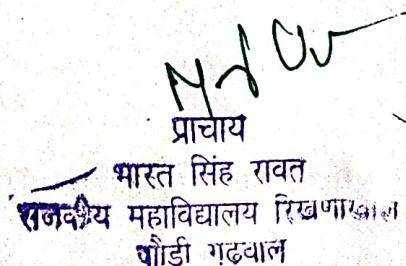 प्राचाय
भारत सिंह रावत
राजकीय महाविद्यालय रिखणाखाल
पौडी गढवाल